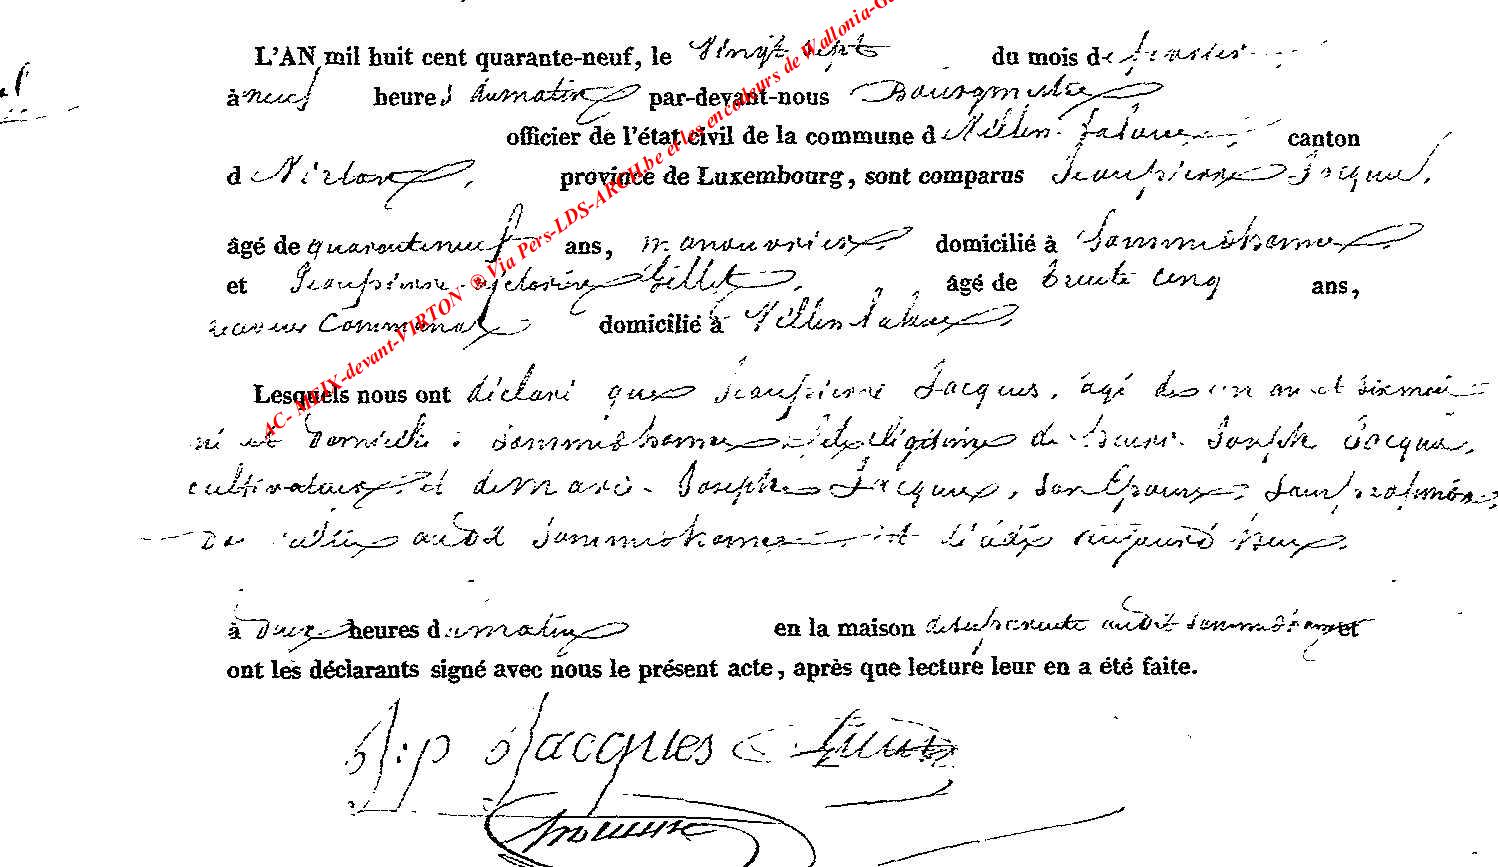 L'AN mil huit cent quarante-neuf, le Vingt sept du mois de
à neuf heures du matin par-devant-nous Bourgmestre
officier de l'état civil de la commune d Villers-la loue canton
d Virton, province de Luxembourg, sont comparus Jeanpierre Jacques,
âgé de quarante neuf ans, manouvrier domicilié à Sommethonne
et Jeanpierre Gillet, âgé de trente cinq ans,
receveur Communal domicilié à Villers la loue.
Lesquels nous ont déclaré que Jeanpierre Jacques, âgé de un an et six mois
né et domicilié à Sommethonne fils légitime de henri Joseph Jacques,
cultivateur et de marie-Joseph Jacques, son Epouse, sans profession
audit Sommethonne est décédé aujourd'hui
à deux heures du matin en la maison de ses parents audit Sommethonne et
ont les déclarants signé avec nous le présent acte, après que lecture leur en a été faite.
J:p Jacques
AC- MEIX-devant-VIRTON ® Via Pers-LDS-ARCH.be et les encodeurs de Wallonia-G